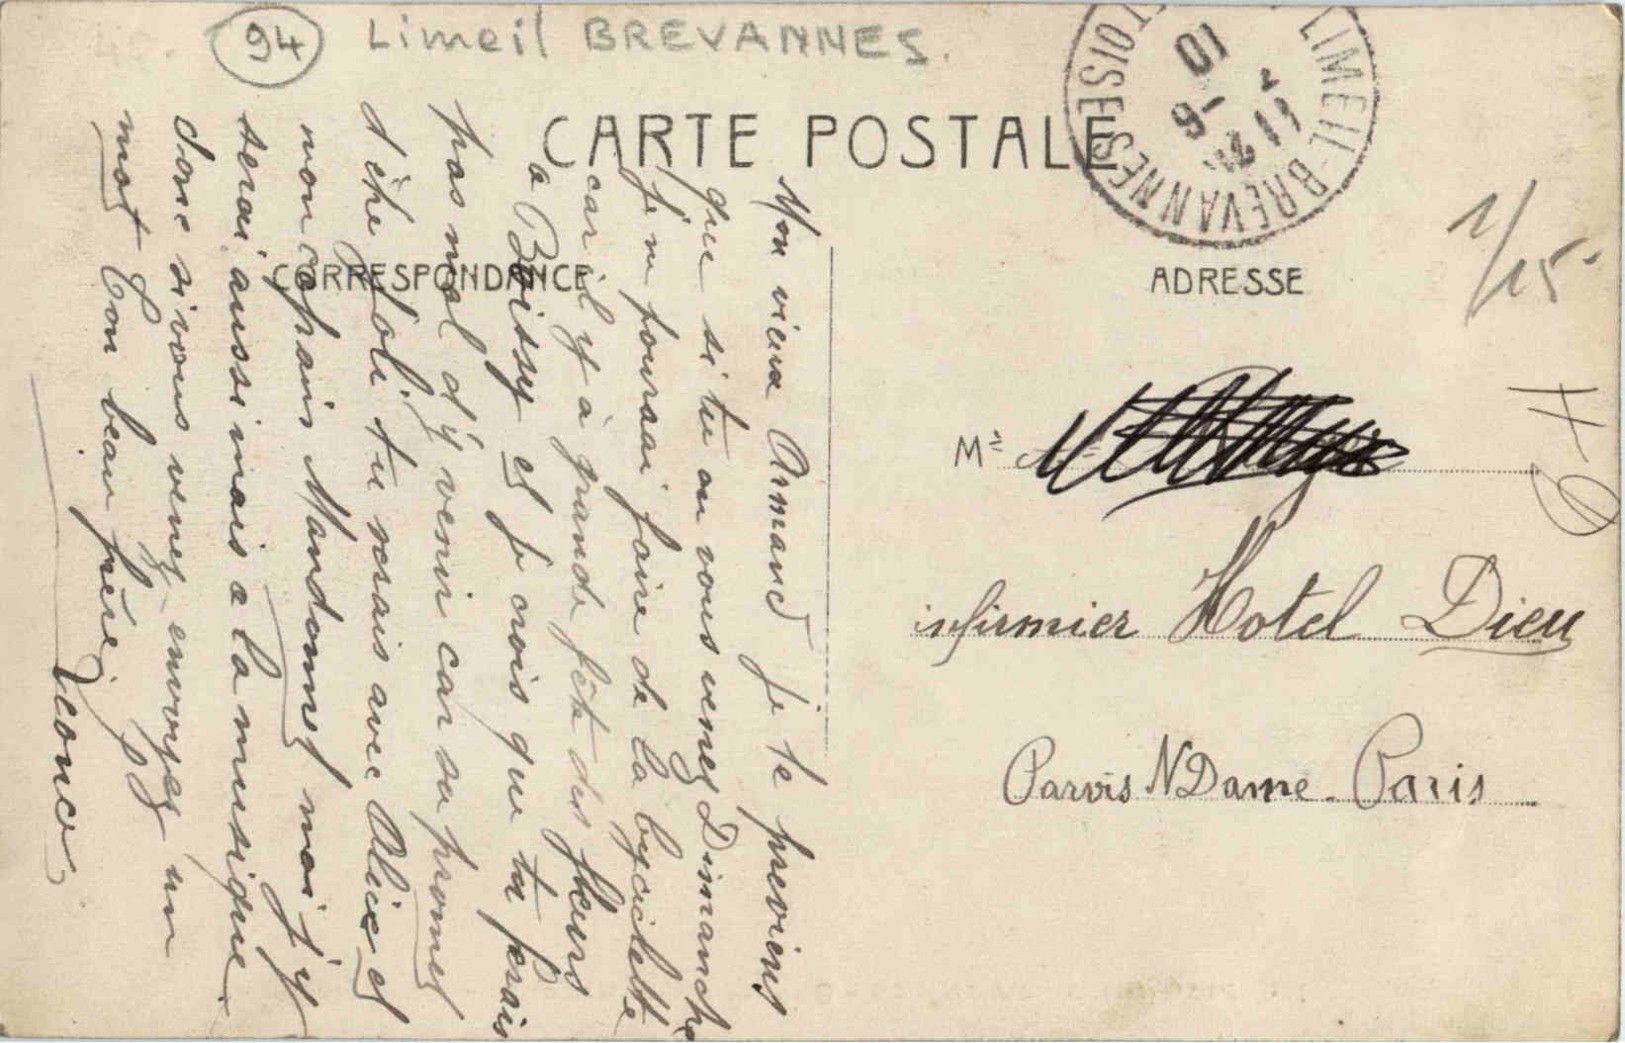 94 Limeil BREVANNES.
CARTE POSTALE
LIMEIL-BREVANNES
11
9-
10
CORRESPONDANCE
ADRESSE
1/15
Mon vieux Armand je te previens
que si tu ou vous venez Dimanche
je ne pourrai faire de la bycielette
car il y à grande fête des fleurs
a Boissy et je crois que tu ferais
pas mal d'y venir car sa promet
d'être joli tu serais avec Alice et
mon copain Mandonnet moi j'y
serai aussi mais a la musique.
donc si vous venez envoyez un
mot Ton beau frère
M
infirmier Hotel Dieu
Parvis N Dame. Paris